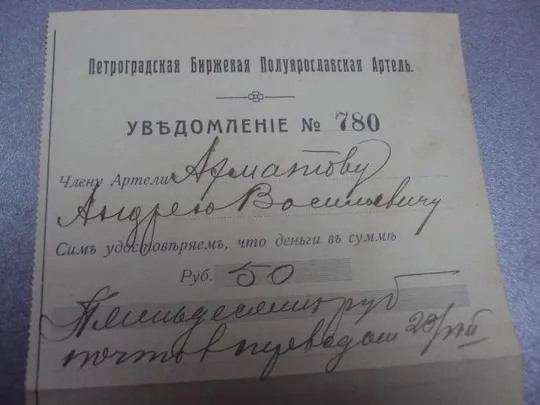 Петроградская Биржевая Полуярославская Артель.
УВѢДОМЛЕНІЕ № 780
Члену Артели Арматову
Андрею Васильевичу
Симъ удостовѣряемъ, что деньги въ суммѣ
Руб. 50
Пятьдесятъ руб
почтов переводом